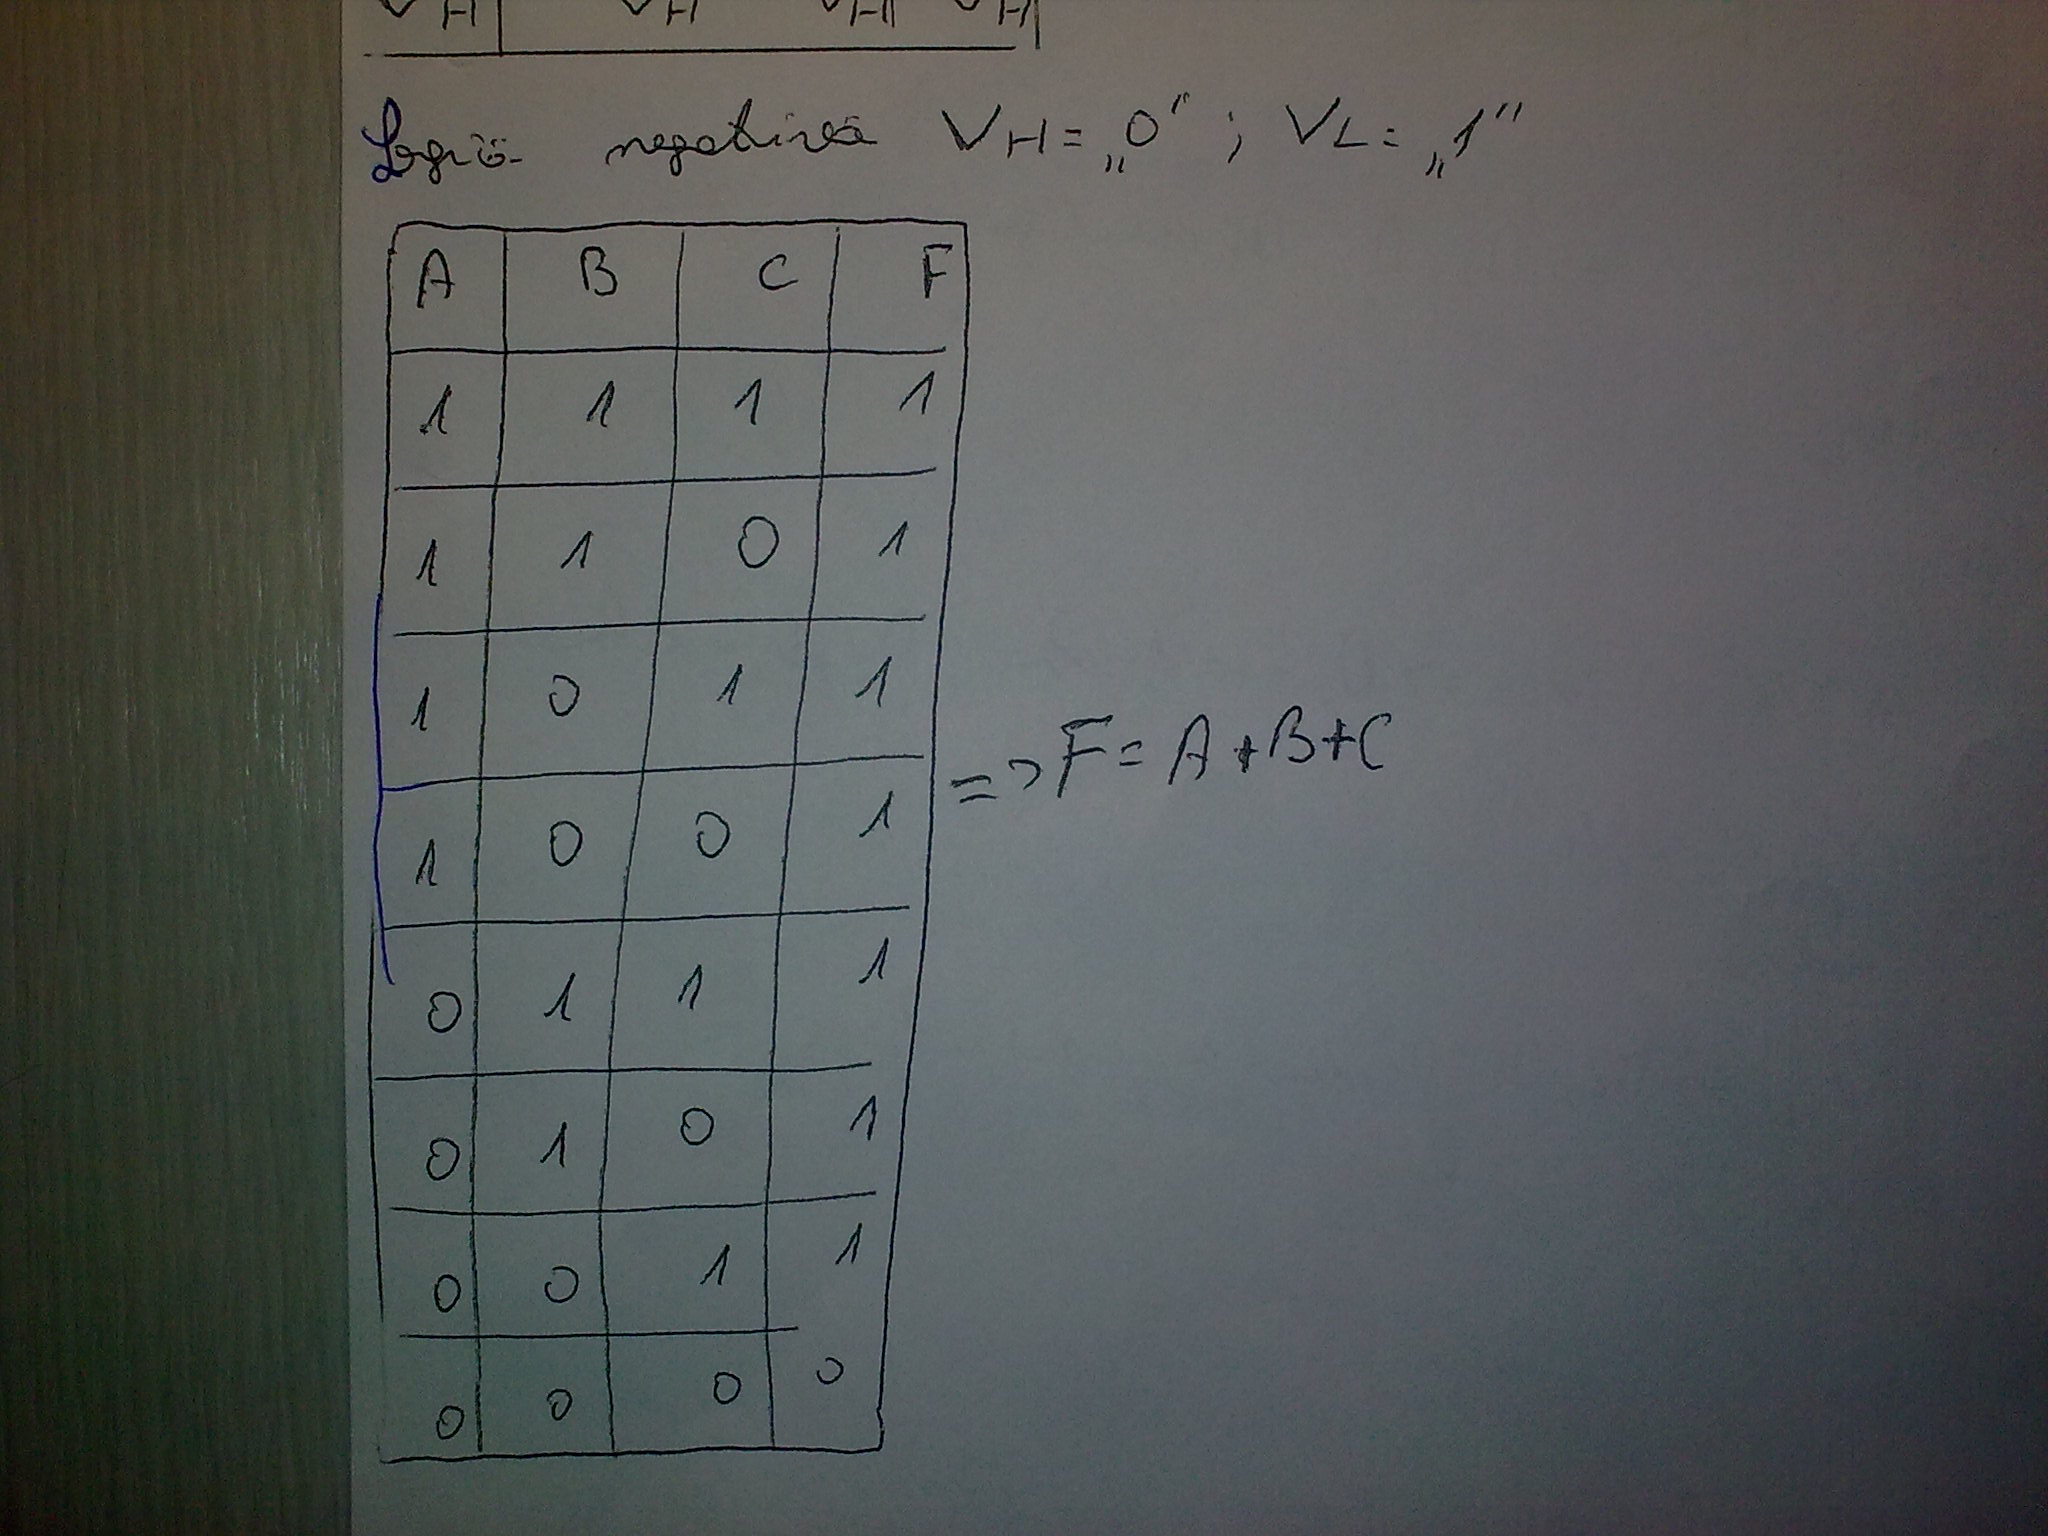 VH VH VH VH
Logică negativă VH = „0"; VL = „1"
A B C F
1 1 1 1
1 1 0 1
1 0 1 1
1 0 0 1
=> F = A + B + C
0 1 1 1
0 1 0 1
0 0 1 1
0 0 0 0